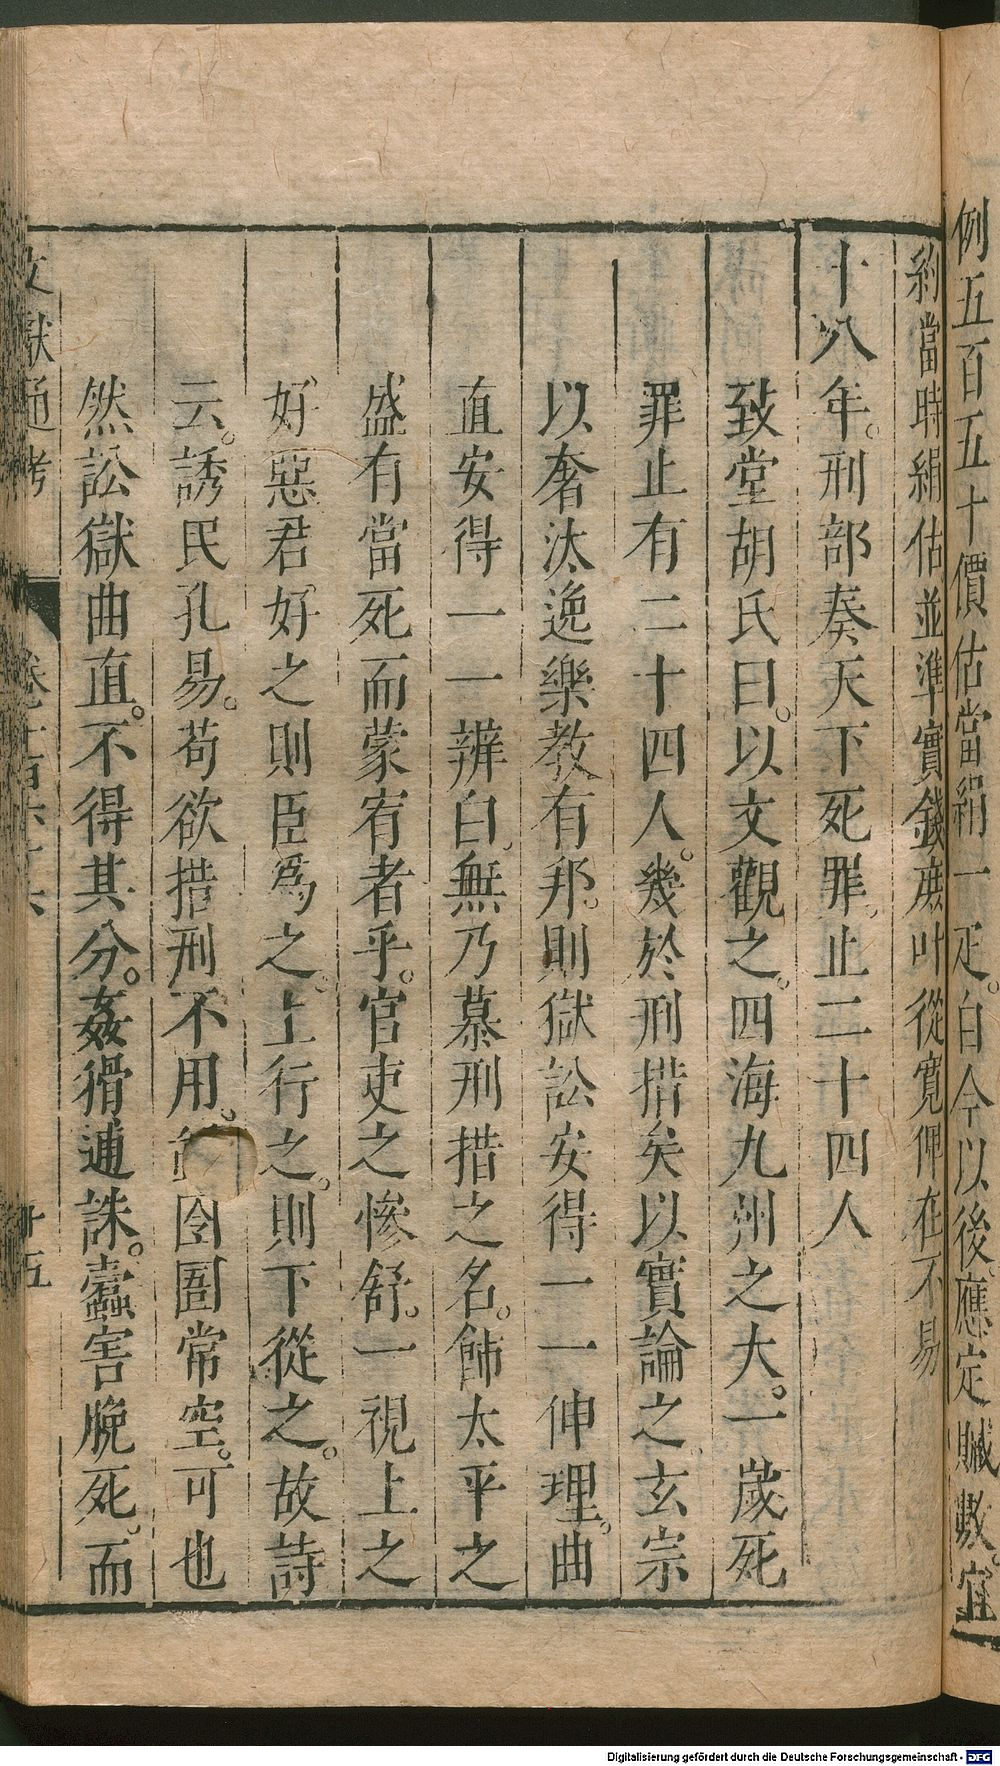 例五百五十價估當絹一疋。自今以後應定贓數。宜
約當時絹估並準實錢庶叶從寬俾在不易
十八年。刑部奏天下死罪。止二十四人
致堂胡氏曰。以文觀之。四海九州之大。一歲死
罪止有二十四人。幾於刑措矣以實論之玄宗
以奢汰逸樂教有邦。則獄訟安得一一伸理。曲
直安得一一辨白。無乃慕刑措之名。飾太平之
盛有當死而蒙宥者乎。官吏之慘舒。一視上之
好惡君好之則臣爲之。上行之。則下從之。故詩
云。誘民孔易。苟欲措刑不用。囹圄常空。可也
然訟獄曲直。不得其分。姦猾逋誅。蠹害脫死。而
文獻通考 卷一百六十六 十五
Digitalisierung gefördert durch die Deutsche Forschungsgemeinschaft - DFG